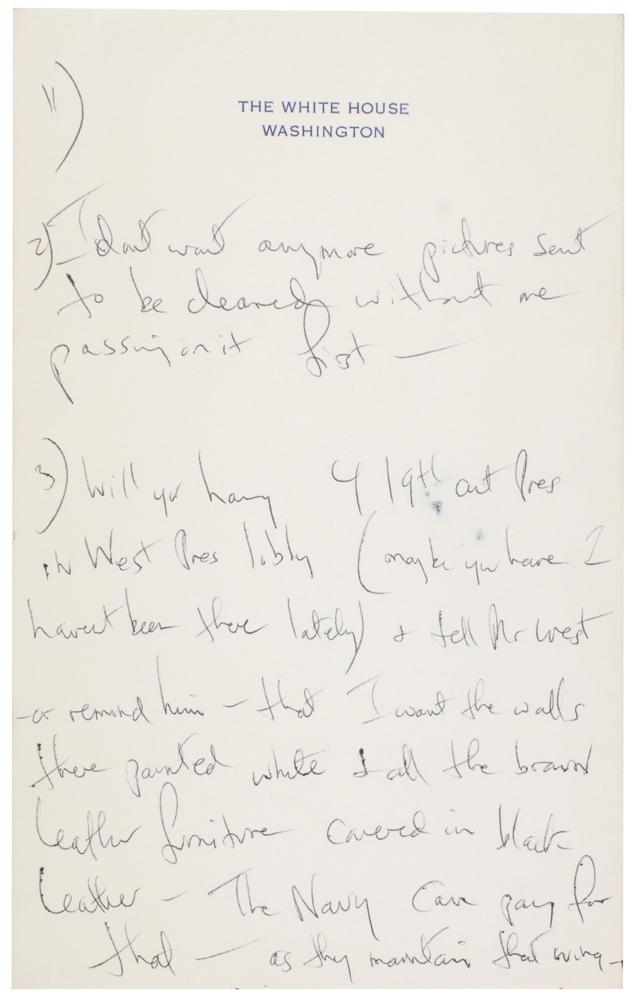 THE WHITE HOUSE
WASHINGTON
1)
2) I dont want anymore pictures sent
to be cleaned without me
passing on it first —
3) Will you hang 4 19th cent Pres
in West Pres lobby (maybe you have I
havent been there lately) & tell Mr West
- or remind him - that I want the walls
there painted white & all the brown
leather furniture covered in black
leather - The Navy can pay for
that — as they maintain that wing -